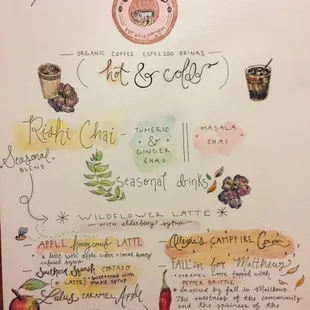 ORGANIC COFFEE ESPRESSO DRINKS
(hot & cold)
Rishi Chai
TUMERIC
&
GINGER
CHAI
MASALA
CHAI
Seasonal
BLEND
seasonal drinks
* WILDFLOWER LATTE *
WITH elderberry syrup
APPLE honeycomb LATTE
a latte with apple cider + local honey
infused syrup
Southern Squash CORTADO
(or LATTE)
sweetened with
maple syrup
CARAMEL Apple
CAMPFIRE Cocoa
FALL'in for Matthews
CARAMEL LATTE topped with
PEPPER BRITTLE
* inspired by fall in Matthews.
The sweetness of the community
and the spiciness of the